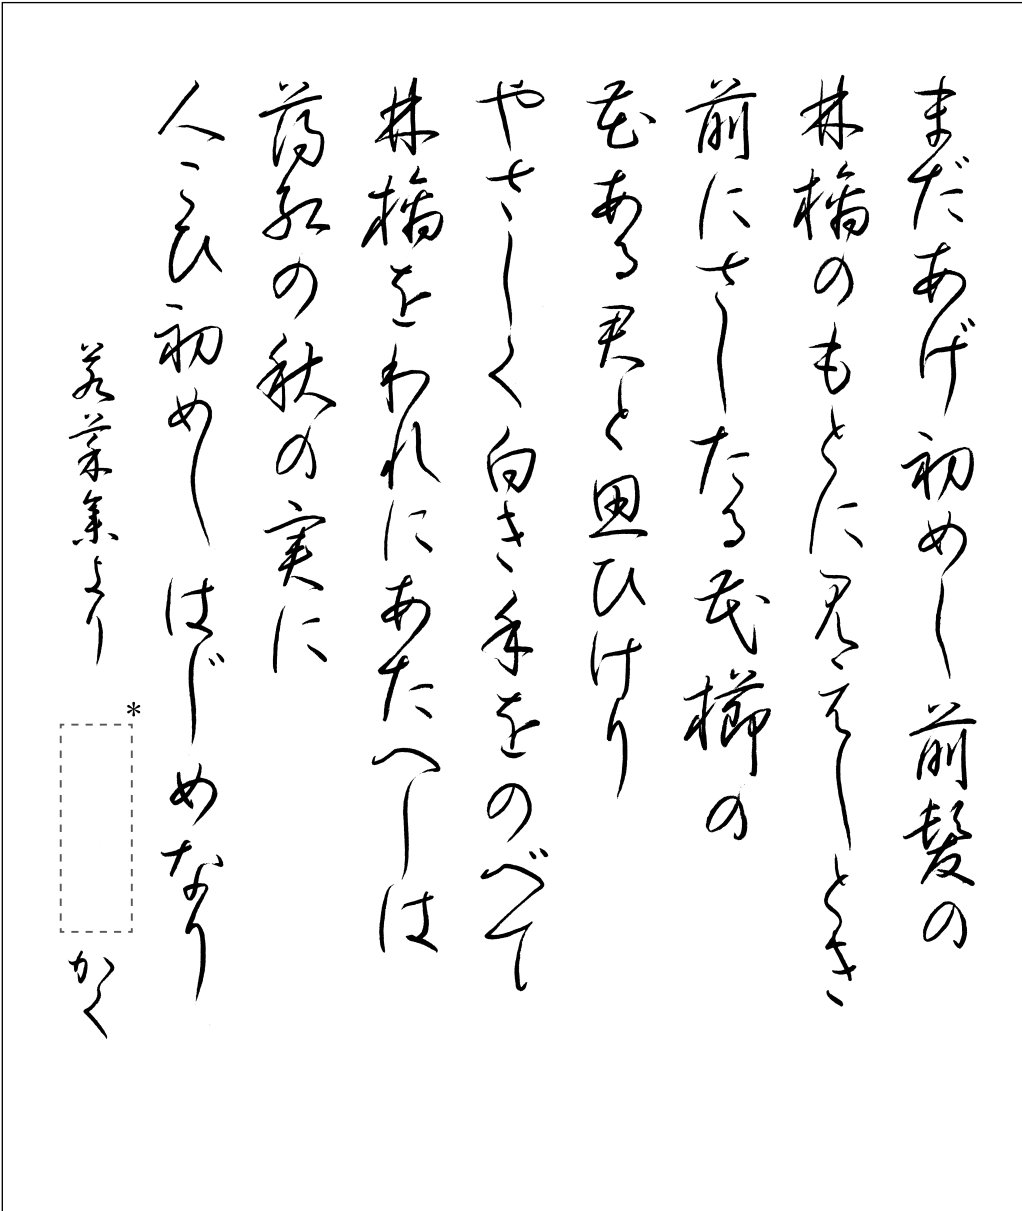 まだあげ初めし前髪の
林檎のもとに見えしとき
前にさしたる花櫛の
花ある君と思ひけり
やさしく白き手をのべて
林檎をわれにあたへしは
薄紅の秋の実に
人こひ初めしはじめなり
若菜集より
*
かく